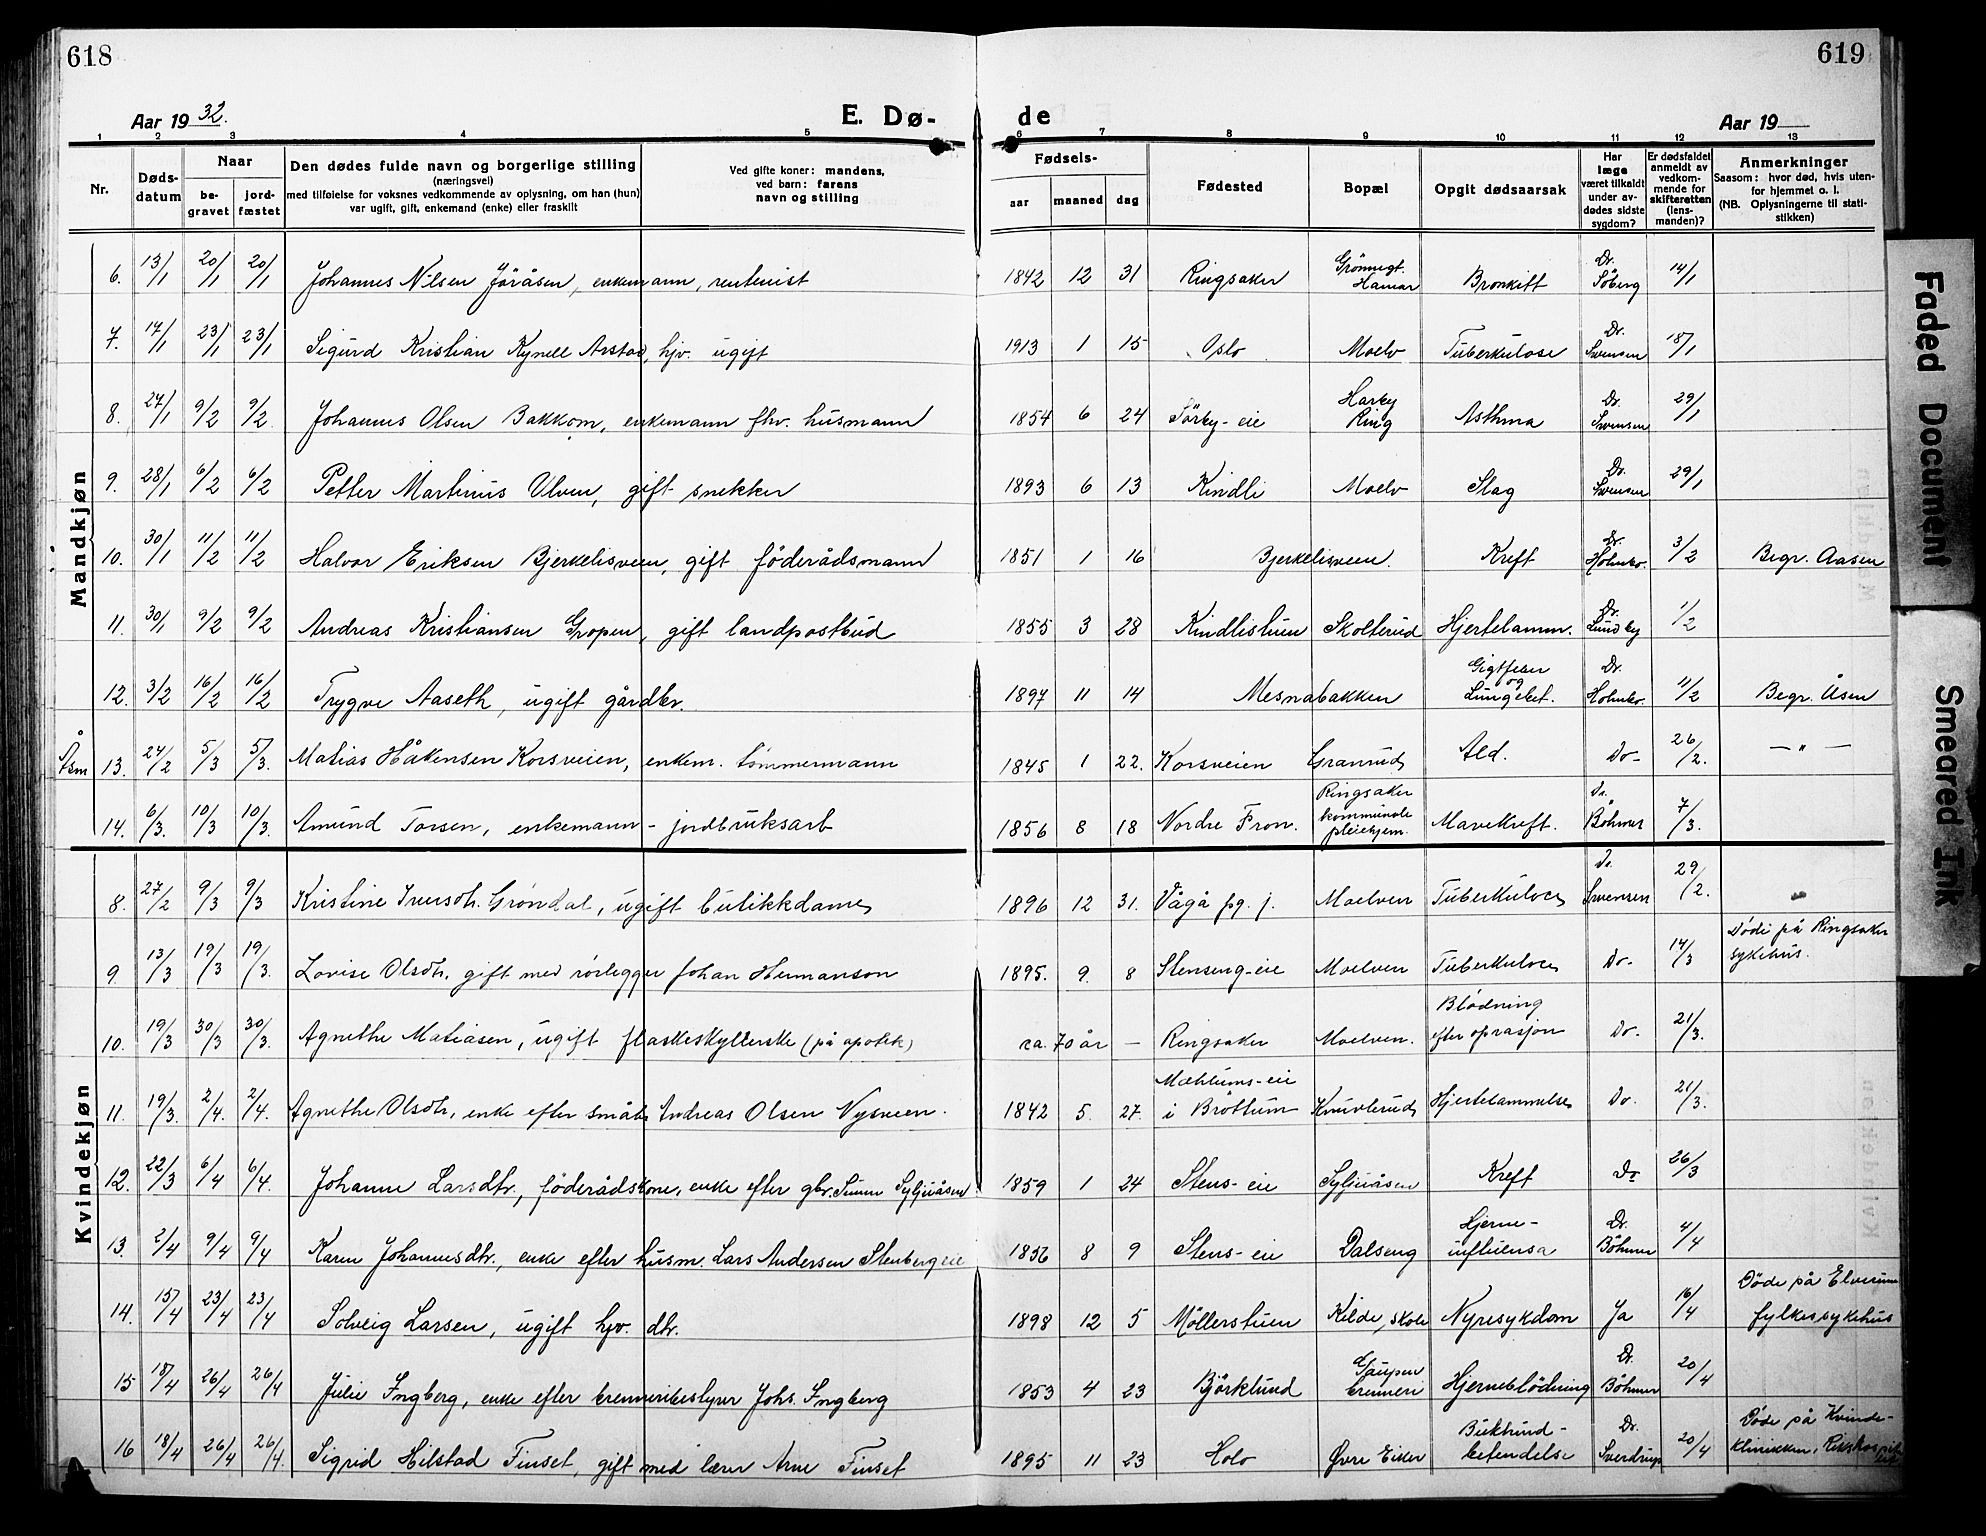 618
619
Aar 1932.
E. Dø-
de
Aar 19
1 2 3 4 5 6 7 8 9 10 11 12 13
Nr.
Døds-
datum
Naar
be-
gravet
jord-
fæstet
Den dødes fulde navn og borgerlige stilling
(næringsvei)
med tilføielse for voksnes vedkommende av oplysning, om han (hun)
var ugift, gift, enkemand (enke) eller fraskilt
Ved gifte koner: mandens,
ved barn: farens
navn og stilling
Fødsels-
aar
maaned
dag
Fødested
Bopæl
Opgit dødsaarsak
Har
læge
været tilkaldt
under av-
dødes sidste
sygdom?
Er dødsfaldet
anmeldt av
vedkom-
mende for
skifteretten
(lens-
manden)?
Anmerkninger
Saasom: hvor død, hvis uten-
for hjemmet o. l.
(NB. Oplysningerne til stati-
stikken)
Mandkjøn
6. 13/1 20/1 20/1 Johannes Nilsen Jøråsen, enkemann, rentenist 1842 12 31 Ringsaker Grønnegt. Hamar Bronkitt Dr. Söberg 14/1
7. 17/1 23/1 23/1 Sigurd Kristian Kynell Arstad, hjv. ugift 1913 1 15 Oslo Moelv Tuberkulose Dr. Svensen 18/1
8. 27/1 9/2 9/2 Johannes Olsen Bakkom, enkemann fhv. husmann 1854 6 24 Sörby-eie Harby Ring Asthma Dr. Svensen 29/1
9. 28/1 6/2 6/2 Petter Martinus Ulven, gift snekker 1893 6 13 Kindli Moelv Slag Dr. Svensen 29/1
10. 30/1 11/2 11/2 Halvor Eriksen Bjerkelisveen, gift föderådsmann 1851 1 16 Bjerkelisveen. Kreft Dr. Holmbo. 3/2 Begr. Aasen
11. 30/1 9/2 9/2 Andreas Kristiansen Gropen, gift landpostbud 1855 3 28 Kindlistuen Skolterud Hjertelamm. Dr. Lundby 1/2
12. 3/2 16/2 16/2 Trygve Aaseth, ugift gårdbr. 1897 11 14 Mesnabakken Gigtfeber og Lungebet. Dr. Holmbo. 11/2 Begr. Åsen
Åsm 13. 24/2 5/3 5/3. Matias Håkensen Korsveien, enkem. tömmermann 1845 1 22. Korsveien Granrud Ald. Do- 26/2. — " —
14. 6/3. 10/3 10/3. Amund Torsen, enkemann - jordbruksarb 1856 8 18 Nordre Fron. Ringsaker kommunale pleiehjem. Mavekreft. Dr. Böhmer 7/3.
Kvindekjøn
8. 27/2 9/3 9/3 Kristine Iversdtr. Grøndal, ugift butikkdame 1896 12 31. Vågå pg. j. Moelven Tuberkulose Dr. Svensen 29/2.
9 13/3 19/3 19/3. Lovise Olsdtr. gift med rörlegger Johan Hermanson 1895. 9. 8 Stenseng-eie Moelven Tuberkulose Do- 14/3 Döde på Ringsaker sykehus.
10. 19/3 30/3 30/3. Agnethe Matiasen, ugift flaskeskyllerske (på apotek) ca. 70 år — Ringsaker Moelven. Blödning efter oprasjon Do- 21/3.
11. 19/3. 2/4. 2/4. Agnethe Olsdtr, enke efter småbr. Andreas Olsen Nysveen. 1842 5. 27. Mæhlums-eie i Brøttum Knuvlerud Hjertelammelse Do. 21/3.
12. 22/3 6/4 6/4. Johanne Larsdtr., föderådskone, enke efter gbr. Simen Syljuåsen 1859 1 24 Stens-eie Syljuåsen Kreft Do 26/3
13. 2/4 9/4 9/4 Karen Johannesdtr., enke efter husm. Lars Andersen Stenbergeie 1856 8 9 Stens-eie Dalseng Hjerne-influensa Dr. Böhmer 4/4
14. 15/4 23/4 23/4 Solveig Larsen, ugift hjv. dtr. 1898 12 5 Möllerstuen Kilde, skole Nyresykdom Ja 16/4 Döde på Elverum fylkessykehus
15 18/4 26/4 26/4 Julie Ingberg, enke efter brenneribestyrer Johs. Ingberg 1853 4 23 Björklund Gaupen brenneri Hjerneblödning Dr. Böhmer 20/4
16 18/4 26/4 26/4. Sigrid Hilstad Finset, gift med lærer Arne Finset 1895 11 23 Holo Øvre Eiker Bukhindbetendelse Dr. Sverdrup 20/4 Döde på Kvinde-klinikken, Rikshospit
Faded Document
Smeared Ink